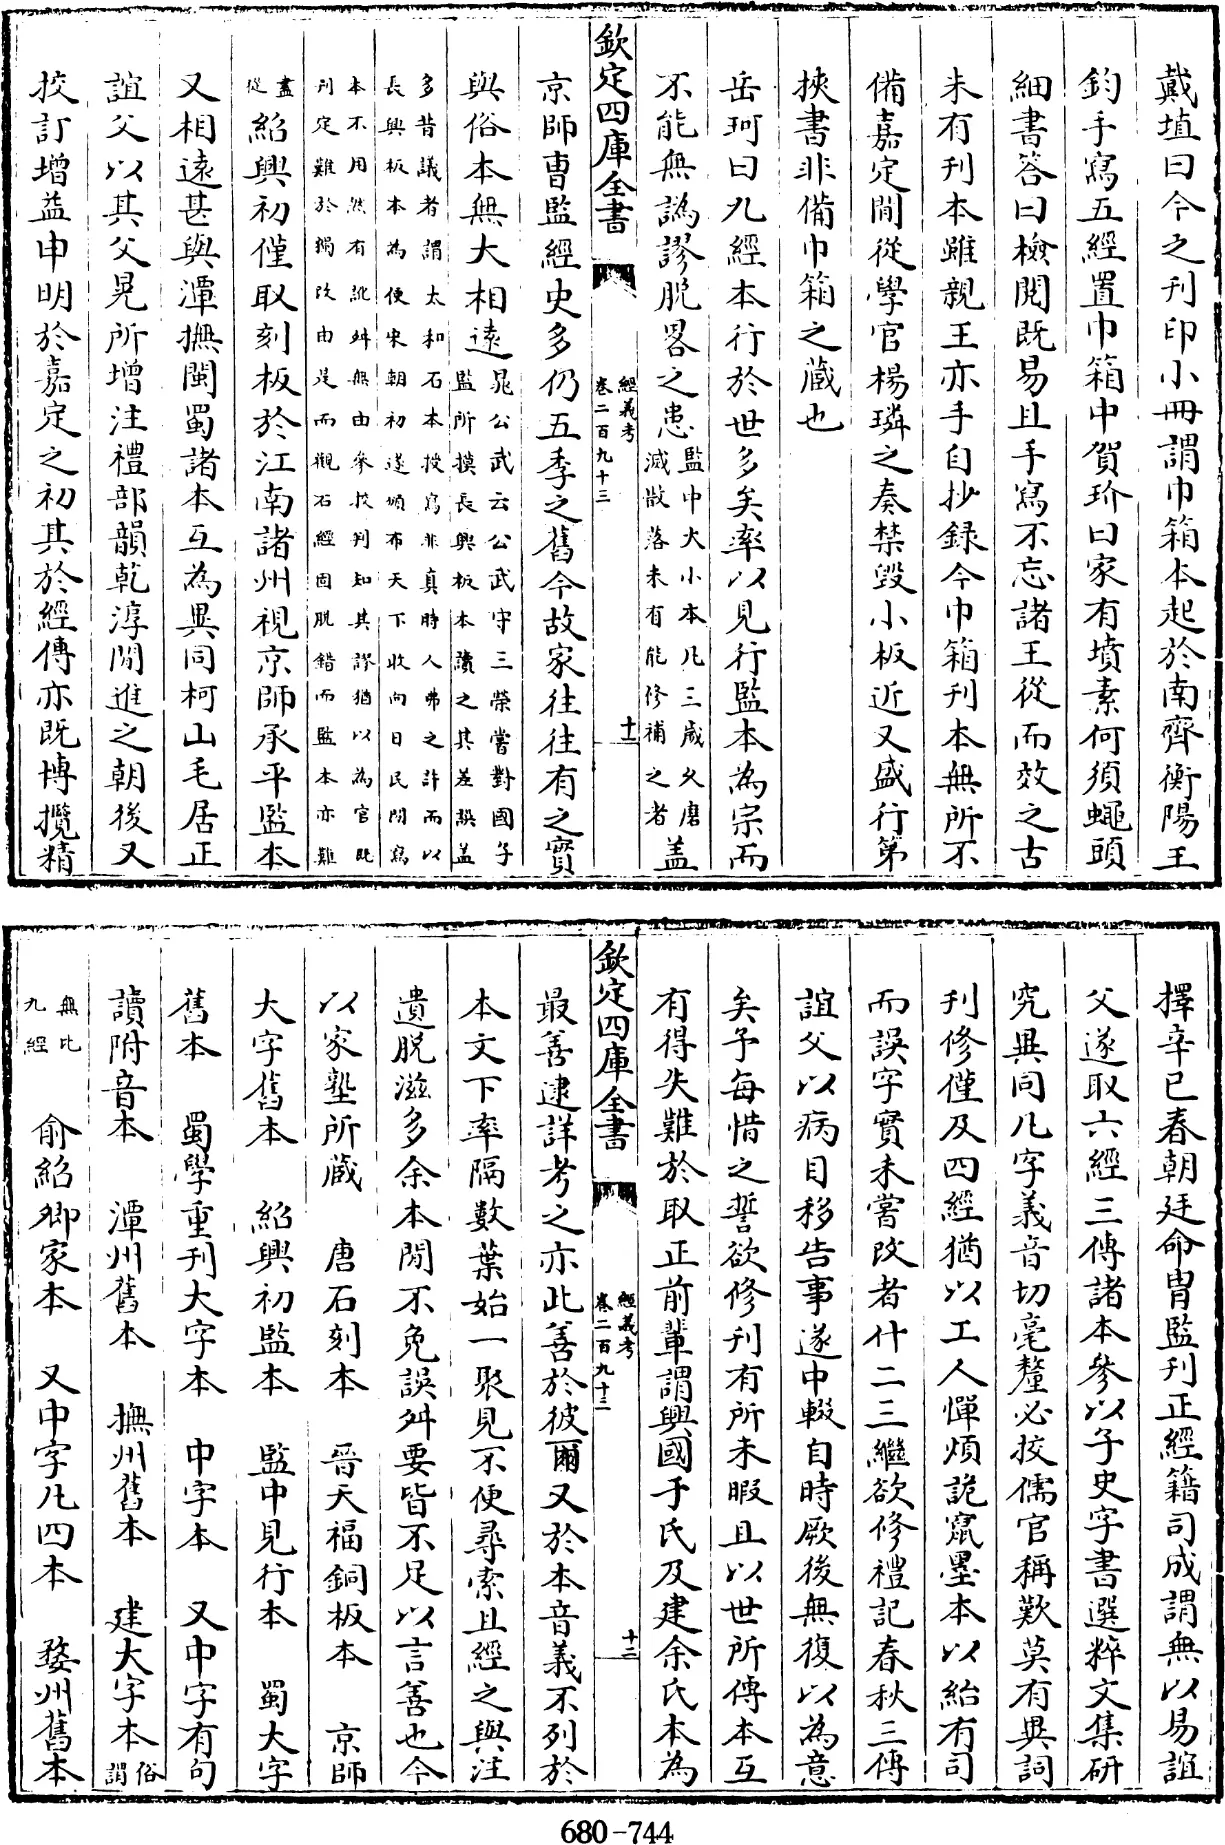 戴埴曰今之刋印小冊謂巾箱本起於南齊衡陽王
鈞手寫五經置巾箱中賀玠曰家有墳素何須蠅頭
細書答曰檢閱既易且手寫不忘諸王從而效之古
未有刋本雖親王亦手自抄録今巾箱刋本無所不
備嘉定間從學官楊璘之奏禁毀小板近又盛行第
挾書非備巾箱之藏也
岳珂曰九經本行於世多矣率以見行監本為宗而
不能無譌謬脱畧之患監中大小本凡三歲久磨滅散落未有能修補之者蓋
欽定四庫全書 經義考 卷二百九十三 十一
京師胄監經史多仍五季之舊今故家往往有之實
與俗本無大相逺晁公武云公武守三榮嘗對國子監所摸長興板本讀之其差誤蓋
多昔議者謂太和石本授寫非真時人弗之許而以長興板本為便宋朝初遂頒布天下收向日民間寫
本不用然有訛舛無由參挍判知其謬猶以為官既刋定難於獨改由是而觀石經固脱錯而監本亦難
盡從紹興初僅取刻板於江南諸州視京師承平監本
又相逺甚與潭撫閩蜀諸本互為異同柯山毛居正
誼父以其父晃所增注禮部韻乾淳間進之朝後又
挍訂增益申明於嘉定之初其於經傳亦既博攬精
擇辛已春朝廷命胄監刋正經籍司成謂無以易誼
父遂取六經三傳諸本參以子史字書選粹文集研
究異同凡字義音切毫釐必挍儒官稱歎莫有異詞
刋修僅及四經猶以工人憚煩詭竄墨本以紿有司
而誤字實未嘗改者什二三繼欲修禮記春秋三傳
誼父以病目移告事遂中輟自時厥後無復以為意
矣予每惜之誓欲修刋有所未暇且以世所傳本互
有得失難於取正前輩謂興國于氏及建余氏本為
欽定四庫全書 經義考 卷二百九十三 十二
最善逮詳考之亦此善於彼爾又於本音義不列於
本文下率隔數葉始一聚見不便尋索且經之與注
遺脱滋多余本間不免誤舛要皆不足以言善也今
以家塾所藏 唐石刻本 晉天福銅板本 京師
大字舊本 紹興初監本 監中見行本 蜀大字
舊本 蜀學重刋大字本 中字本 又中字有句
讀附音本 潭州舊本 撫州舊本 建大字本俗謂
無比九經 俞紹卿家本 又中字凡四本 婺州舊本
680-744